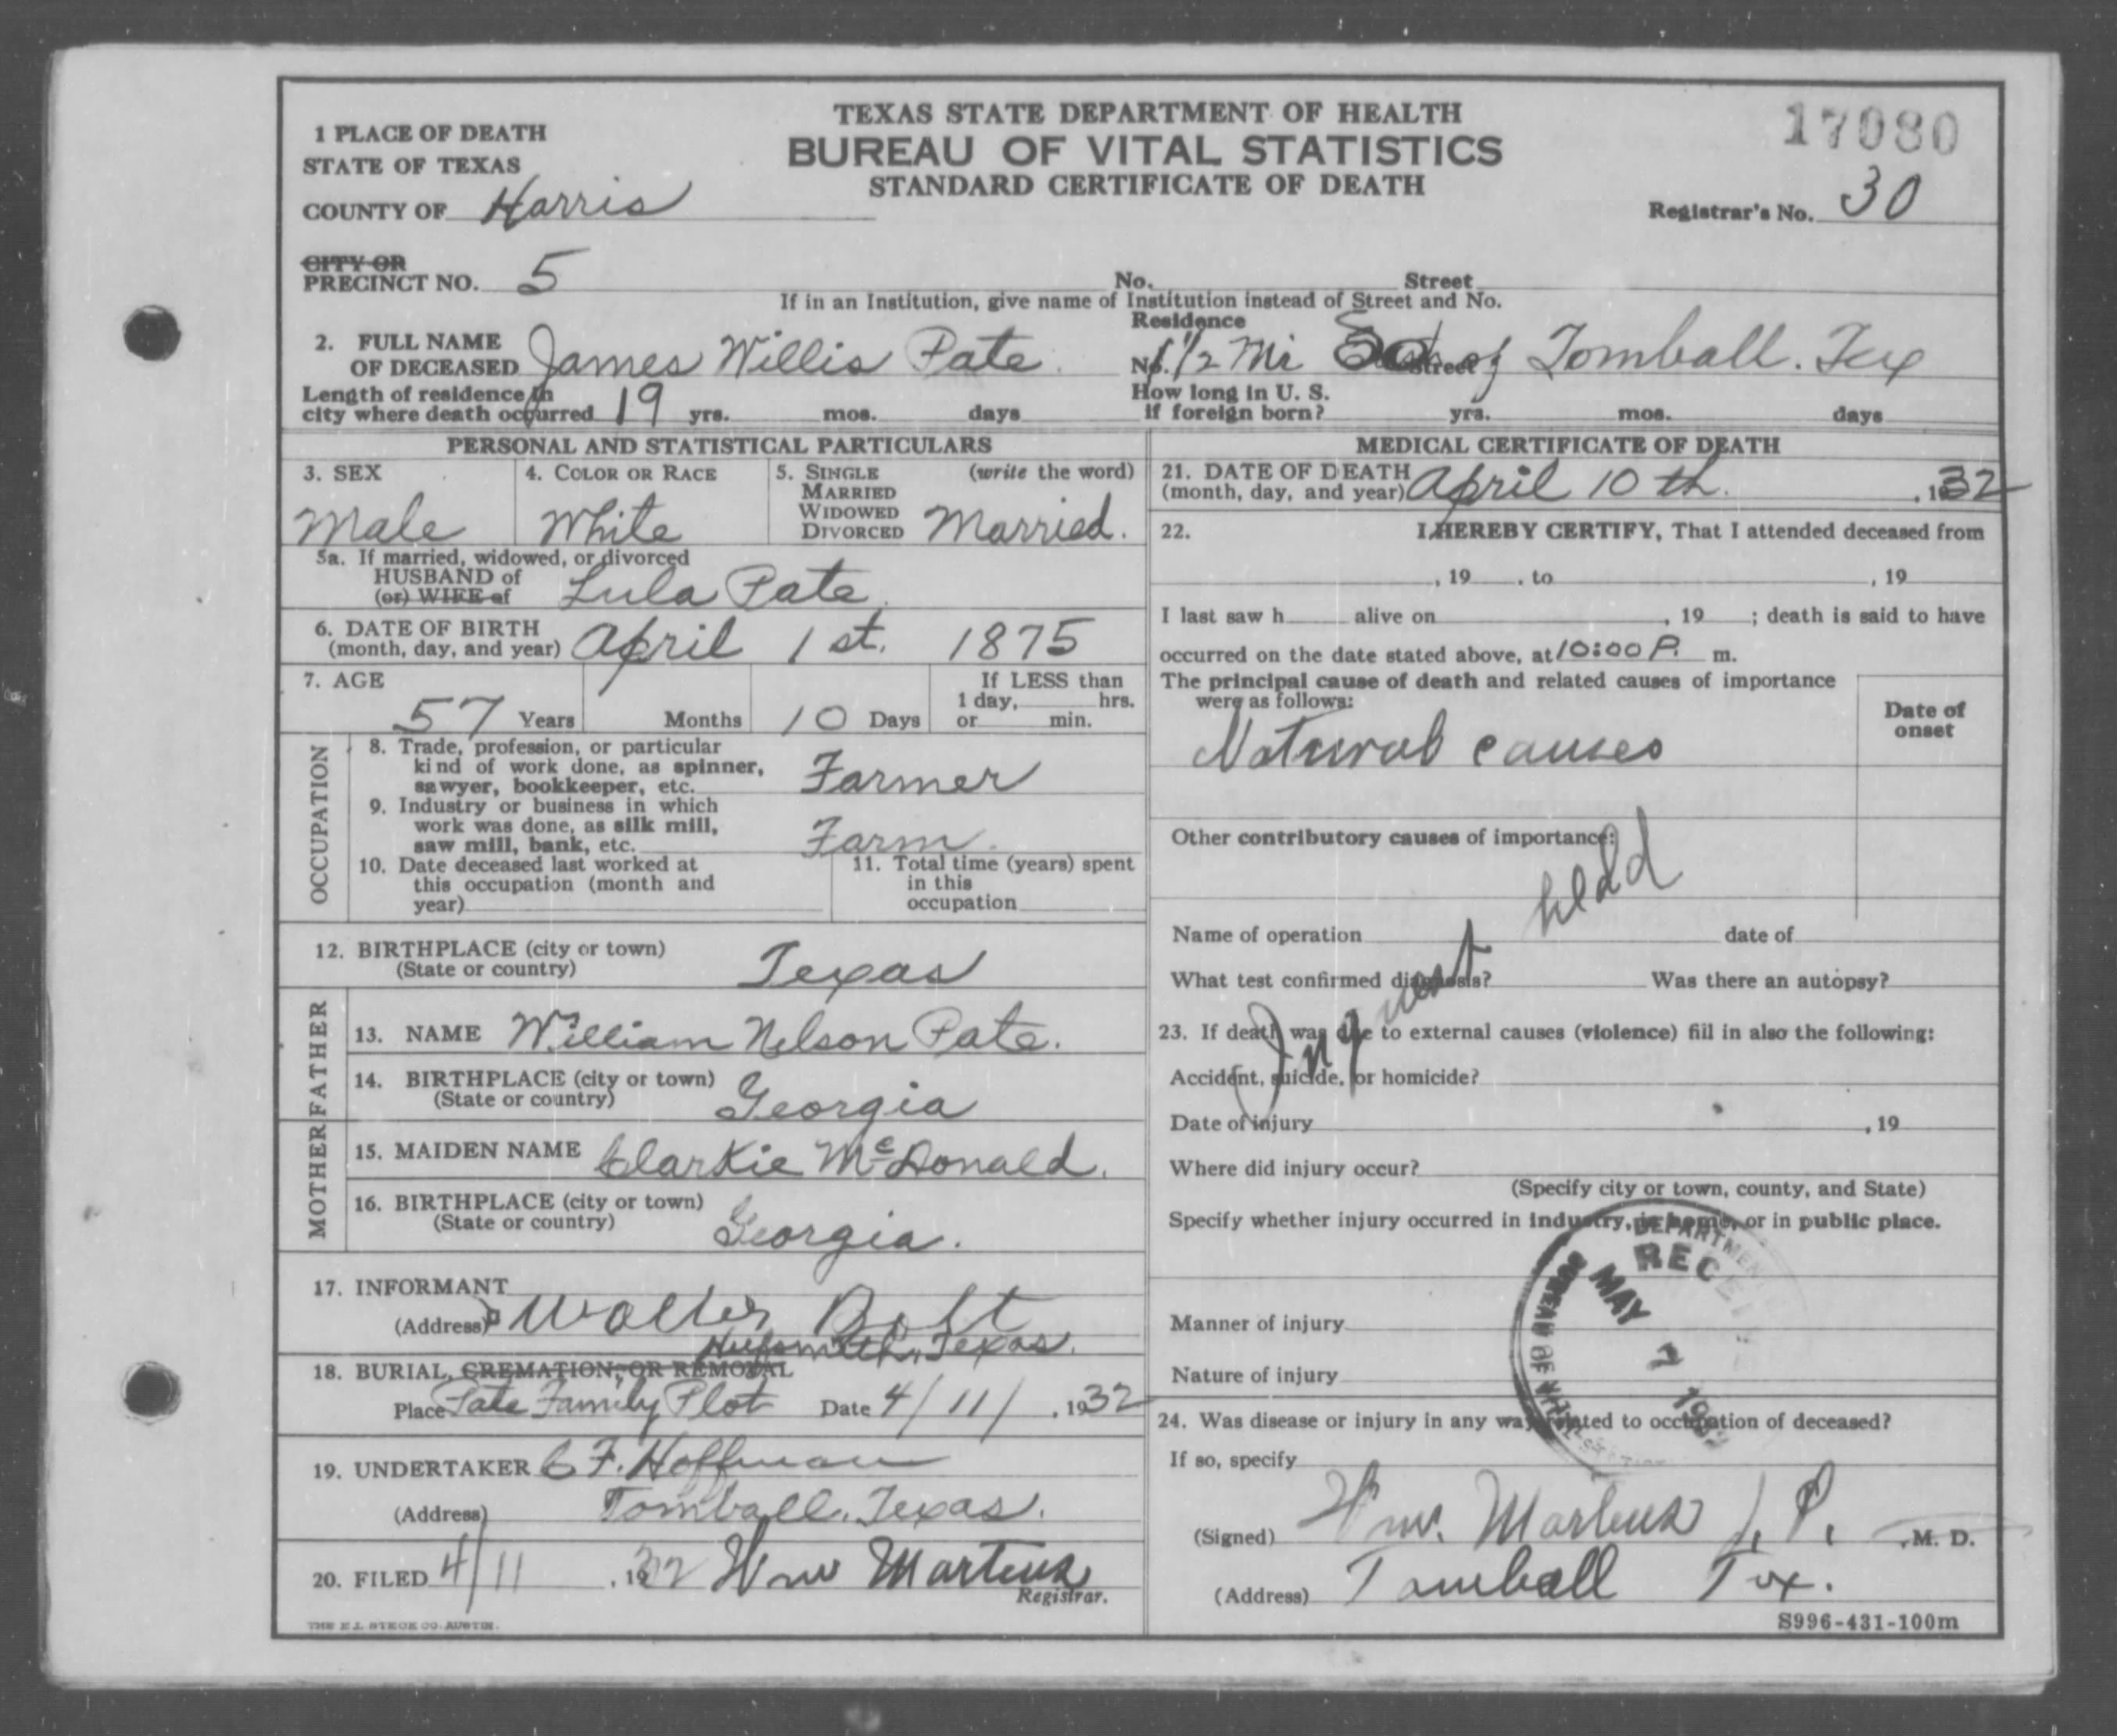 TEXAS STATE DEPARTMENT OF HEALTH
BUREAU OF VITAL STATISTICS
STANDARD CERTIFICATE OF DEATH
17080
1 PLACE OF DEATH
STATE OF TEXAS
COUNTY OF Harris
Registrar's No. 30
CITY OR
PRECINCT NO. 5 No. Street
If in an Institution, give name of Institution instead of Street and No.
Residence
2. FULL NAME
OF DECEASED James Willis Pate No. 1 1/2 Mi So Street of Tomball. Tex
Length of residence in
city where death occurred 19 yrs. mos. days
How long in U. S.
if foreign born? yrs. mos. days
PERSONAL AND STATISTICAL PARTICULARS
3. SEX
Male
4. COLOR OR RACE
White
5. SINGLE (write the word)
MARRIED
WIDOWED
DIVORCED Married.
5a. If married, widowed, or divorced
HUSBAND of
(or) WIFE of Lula Pate.
6. DATE OF BIRTH
(month, day, and year) April 1st. 1875
7. AGE
57 Years Months 10 Days
If LESS than
1 day, hrs.
or min.
OCCUPATION
8. Trade, profession, or particular
kind of work done, as spinner,
sawyer, bookkeeper, etc. Farmer
9. Industry or business in which
work was done, as silk mill,
saw mill, bank, etc. Farm.
10. Date deceased last worked at
this occupation (month and
year)
11. Total time (years) spent
in this
occupation
12. BIRTHPLACE (city or town)
(State or country) Texas
FATHER
13. NAME William Nelson Pate.
14. BIRTHPLACE (city or town)
(State or country) Georgia
MOTHER
15. MAIDEN NAME Clarkie McDonald.
16. BIRTHPLACE (city or town)
(State or country) Georgia.
17. INFORMANT
(Address) Walter Bolt
Hufsmith, Texas.
18. BURIAL, CREMATION, OR REMOVAL
Place Pate Family Plot Date 4/11/, 1932
19. UNDERTAKER C F. Hoffman
(Address) Tomball, Texas.
20. FILED 4/11, 1932 Wm Martens
Registrar.
THE E.L. STECK CO. AUSTIN.
MEDICAL CERTIFICATE OF DEATH
21. DATE OF DEATH
(month, day, and year) April 10th. , 1932
22. I HEREBY CERTIFY, That I attended deceased from
, 19 , to , 19
I last saw h alive on , 19 ; death is said to have
occurred on the date stated above, at 10:00 P. m.
The principal cause of death and related causes of importance
were as follows:
Date of
onset
Natural causes
Other contributory causes of importance:
Inquest held
Name of operation date of
What test confirmed diagnosis? Was there an autopsy?
23. If death was due to external causes (violence) fill in also the following:
Accident, suicide, or homicide?
Date of injury , 19
Where did injury occur?
(Specify city or town, county, and State)
Specify whether injury occurred in industry, in home, or in public place.
DEPARTMENT
RECEIVED
MAY 7 1932
BUREAU OF VITAL STATISTICS
Manner of injury
Nature of injury
24. Was disease or injury in any way related to occupation of deceased?
If so, specify
(Signed) Wm. Martens J. P. , M. D.
(Address) Tomball Tex.
S996-431-100m